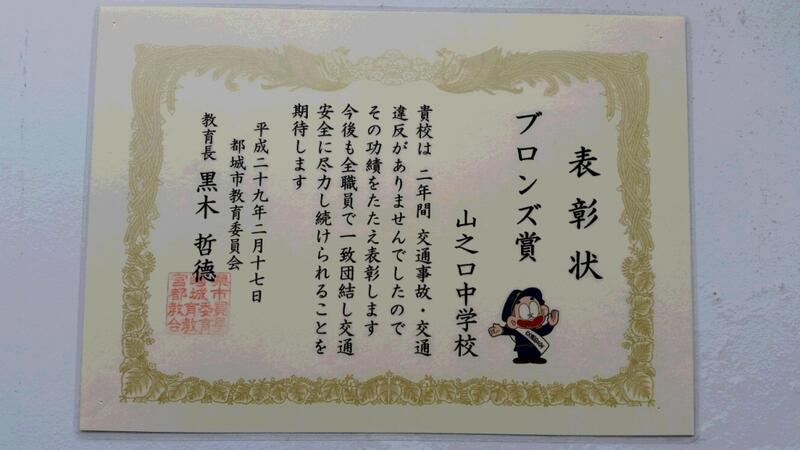 表彰状
ブロンズ賞
山之口中学校
貴校は 二年間 交通事故・交通
違反がありませんでしたので
その功績をたたえ表彰します
今後も全職員で一致団結し交通
安全に尽力し続けられることを
期待します
平成二十九年二月十七日
都城市教育委員会
教育長 黒木 哲徳